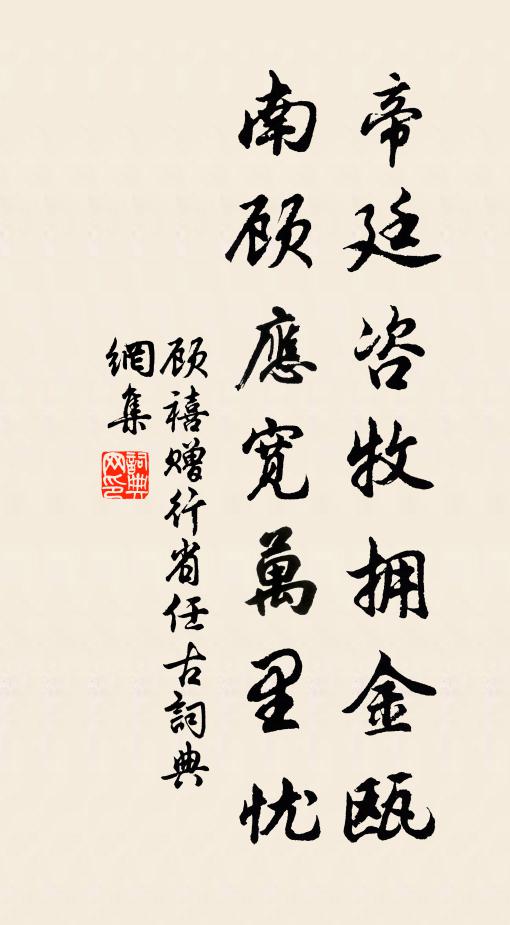 帝廷咨牧拥金瓯
南顾應宽萬里忧
顾禧赠行省任古詞典
網集
詞典
网印